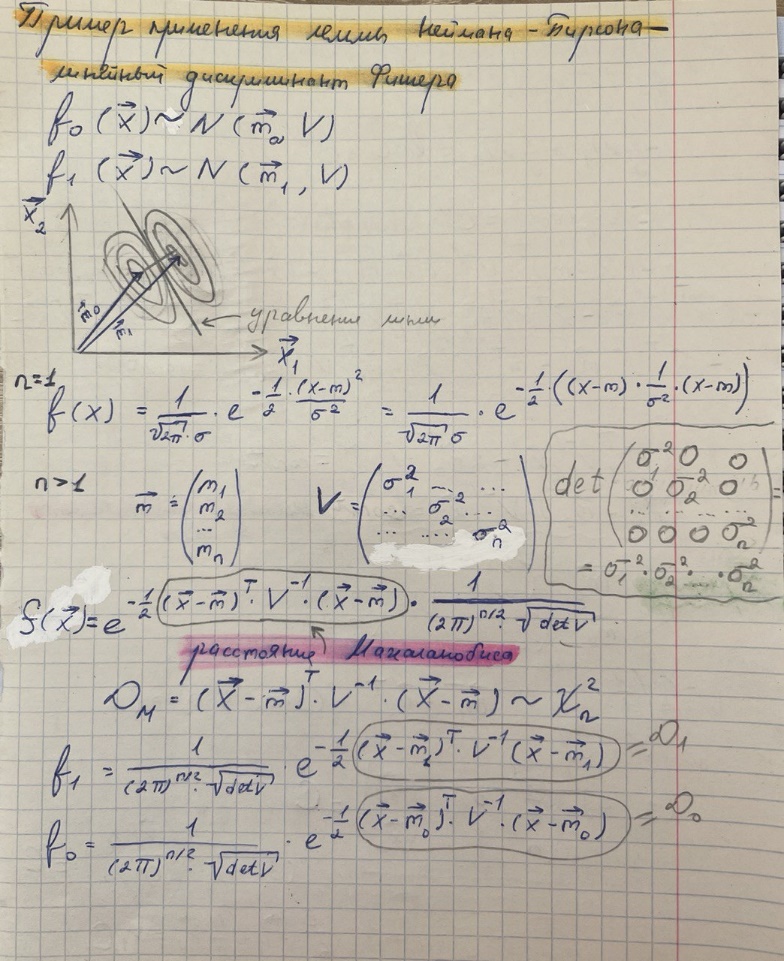 Пример применения леммы Неймана-Пирсона—
линейный дискриминант Фишера
f₀ (x⃗) ~ N (m⃗₀, V)
f₁ (x⃗) ~ N (m⃗₁, V)
x⃗₂
m⃗₀
m⃗₁
уравнение линии
x⃗₁
n=1
f(x) = 1/(√2π · σ) · e^(-1/2 · (x-m)²/σ²) = 1/(√2π σ) · e^(-1/2 · ((x-m) · 1/σ² · (x-m)))
n>1
m⃗ = (m₁ m₂ ... mₙ)
V = (σ₁² ... ... ... σ₂² ... ... ... σₙ²)
det (σ₁² 0 0 0 σ₂² 0 ... ... ... 0 0 0 σₙ²) =
= σ₁² · σ₂² · ... · σₙ²
f(x⃗) = e^(-1/2 (x⃗-m⃗)ᵀ · V⁻¹ · (x⃗-m⃗)) · 1/((2π)^(n/2) · √det V)
расстояние Махаланобиса
D_M = (x⃗ - m⃗)ᵀ · V⁻¹ · (x⃗ - m⃗) ~ χₙ²
f₁ = 1/((2π)^(n/2) · √det V) · e^(-1/2 (x⃗-m⃗₁)ᵀ · V⁻¹ (x⃗-m⃗₁)) = D₁
f₀ = 1/((2π)^(n/2) · √det V) · e^(-1/2 (x⃗-m⃗₀)ᵀ · V⁻¹ · (x⃗-m⃗₀)) = D₀